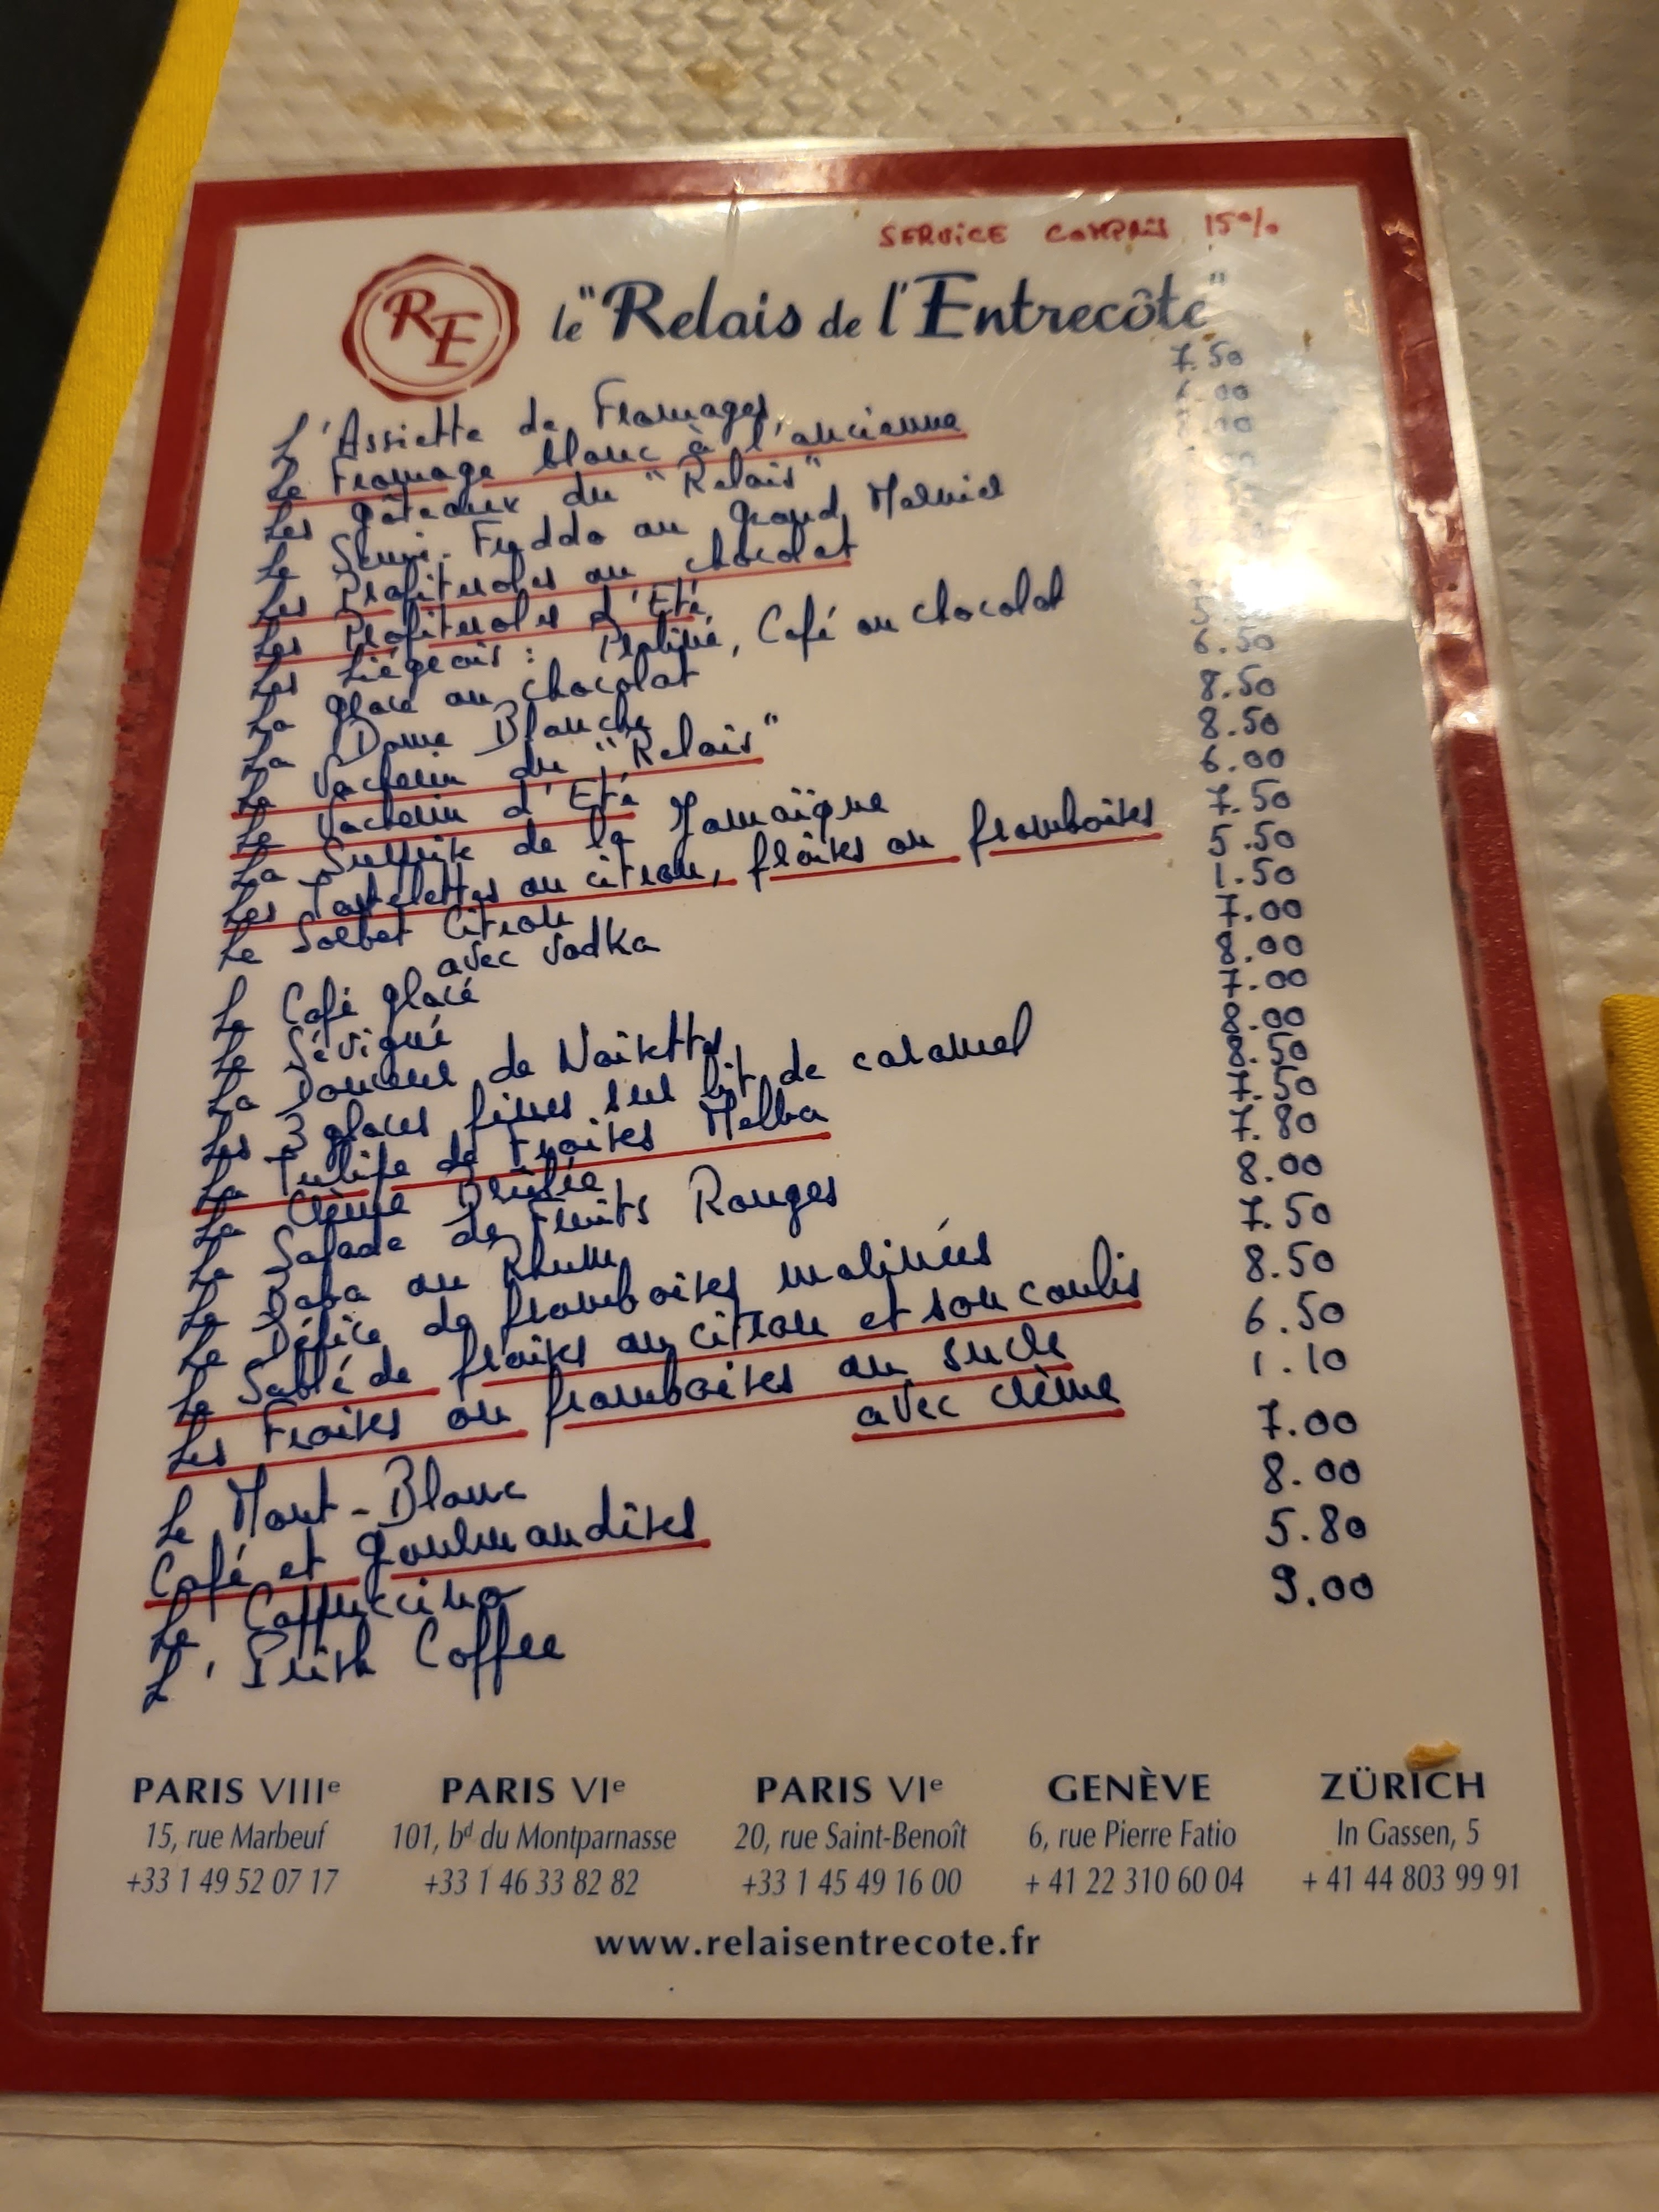 SERVICE COMPRIS 15%
RE
le "Relais de l'Entrecôte"
L'Assiette de Fromages 7.50
Le Fromage blanc à l'ancienne 6.00
Les gâteaux du "Relais"
Le Semi-Freddo au Grand Marnier
Les Profiteroles au chocolat
Les Profiteroles d'Eté
Les Liégeois: Praliné, Café ou chocolat
La glace au chocolat
La Dame Blanche 6.50
Le Vacherin du "Relais" 8.50
Le Vacherin d'Eté 8.50
La Surprise de la Jamaïque 6.00
Les Tartelettes au citron, fraises ou framboises 7.50
Le Sorbet Citron 5.50
avec Vodka 1.50
Le Café glacé 7.00
Le Sévigné 8.00
La Douceur de Noisettes 7.00
Les 3 glaces fines sur lit de caramel 8.00
La Tulipe de Fraises Melba 8.50
La Crème Brûlée 7.50
La Salade de Fruits Rouges 7.80
Le Baba au Rhum 8.00
Le Délice de framboises meringuées 7.50
Le Sablé de fraises au citron et son coulis 8.50
Les Fraises ou framboises au sucre 6.50
avec crème 1.10
Le Mont-Blanc 7.00
Café et gourmandises 8.00
Le Cappuccino 5.80
L'Irish Coffee 9.00
PARIS VIIIe PARIS VIe PARIS VIe GENÈVE ZÜRICH
15, rue Marbeuf 101, bd du Montparnasse 20, rue Saint-Benoît 6, rue Pierre Fatio In Gassen, 5
+33 1 49 52 07 17 +33 1 46 33 82 82 +33 1 45 49 16 00 + 41 22 310 60 04 + 41 44 803 99 91
www.relaisentrecote.fr